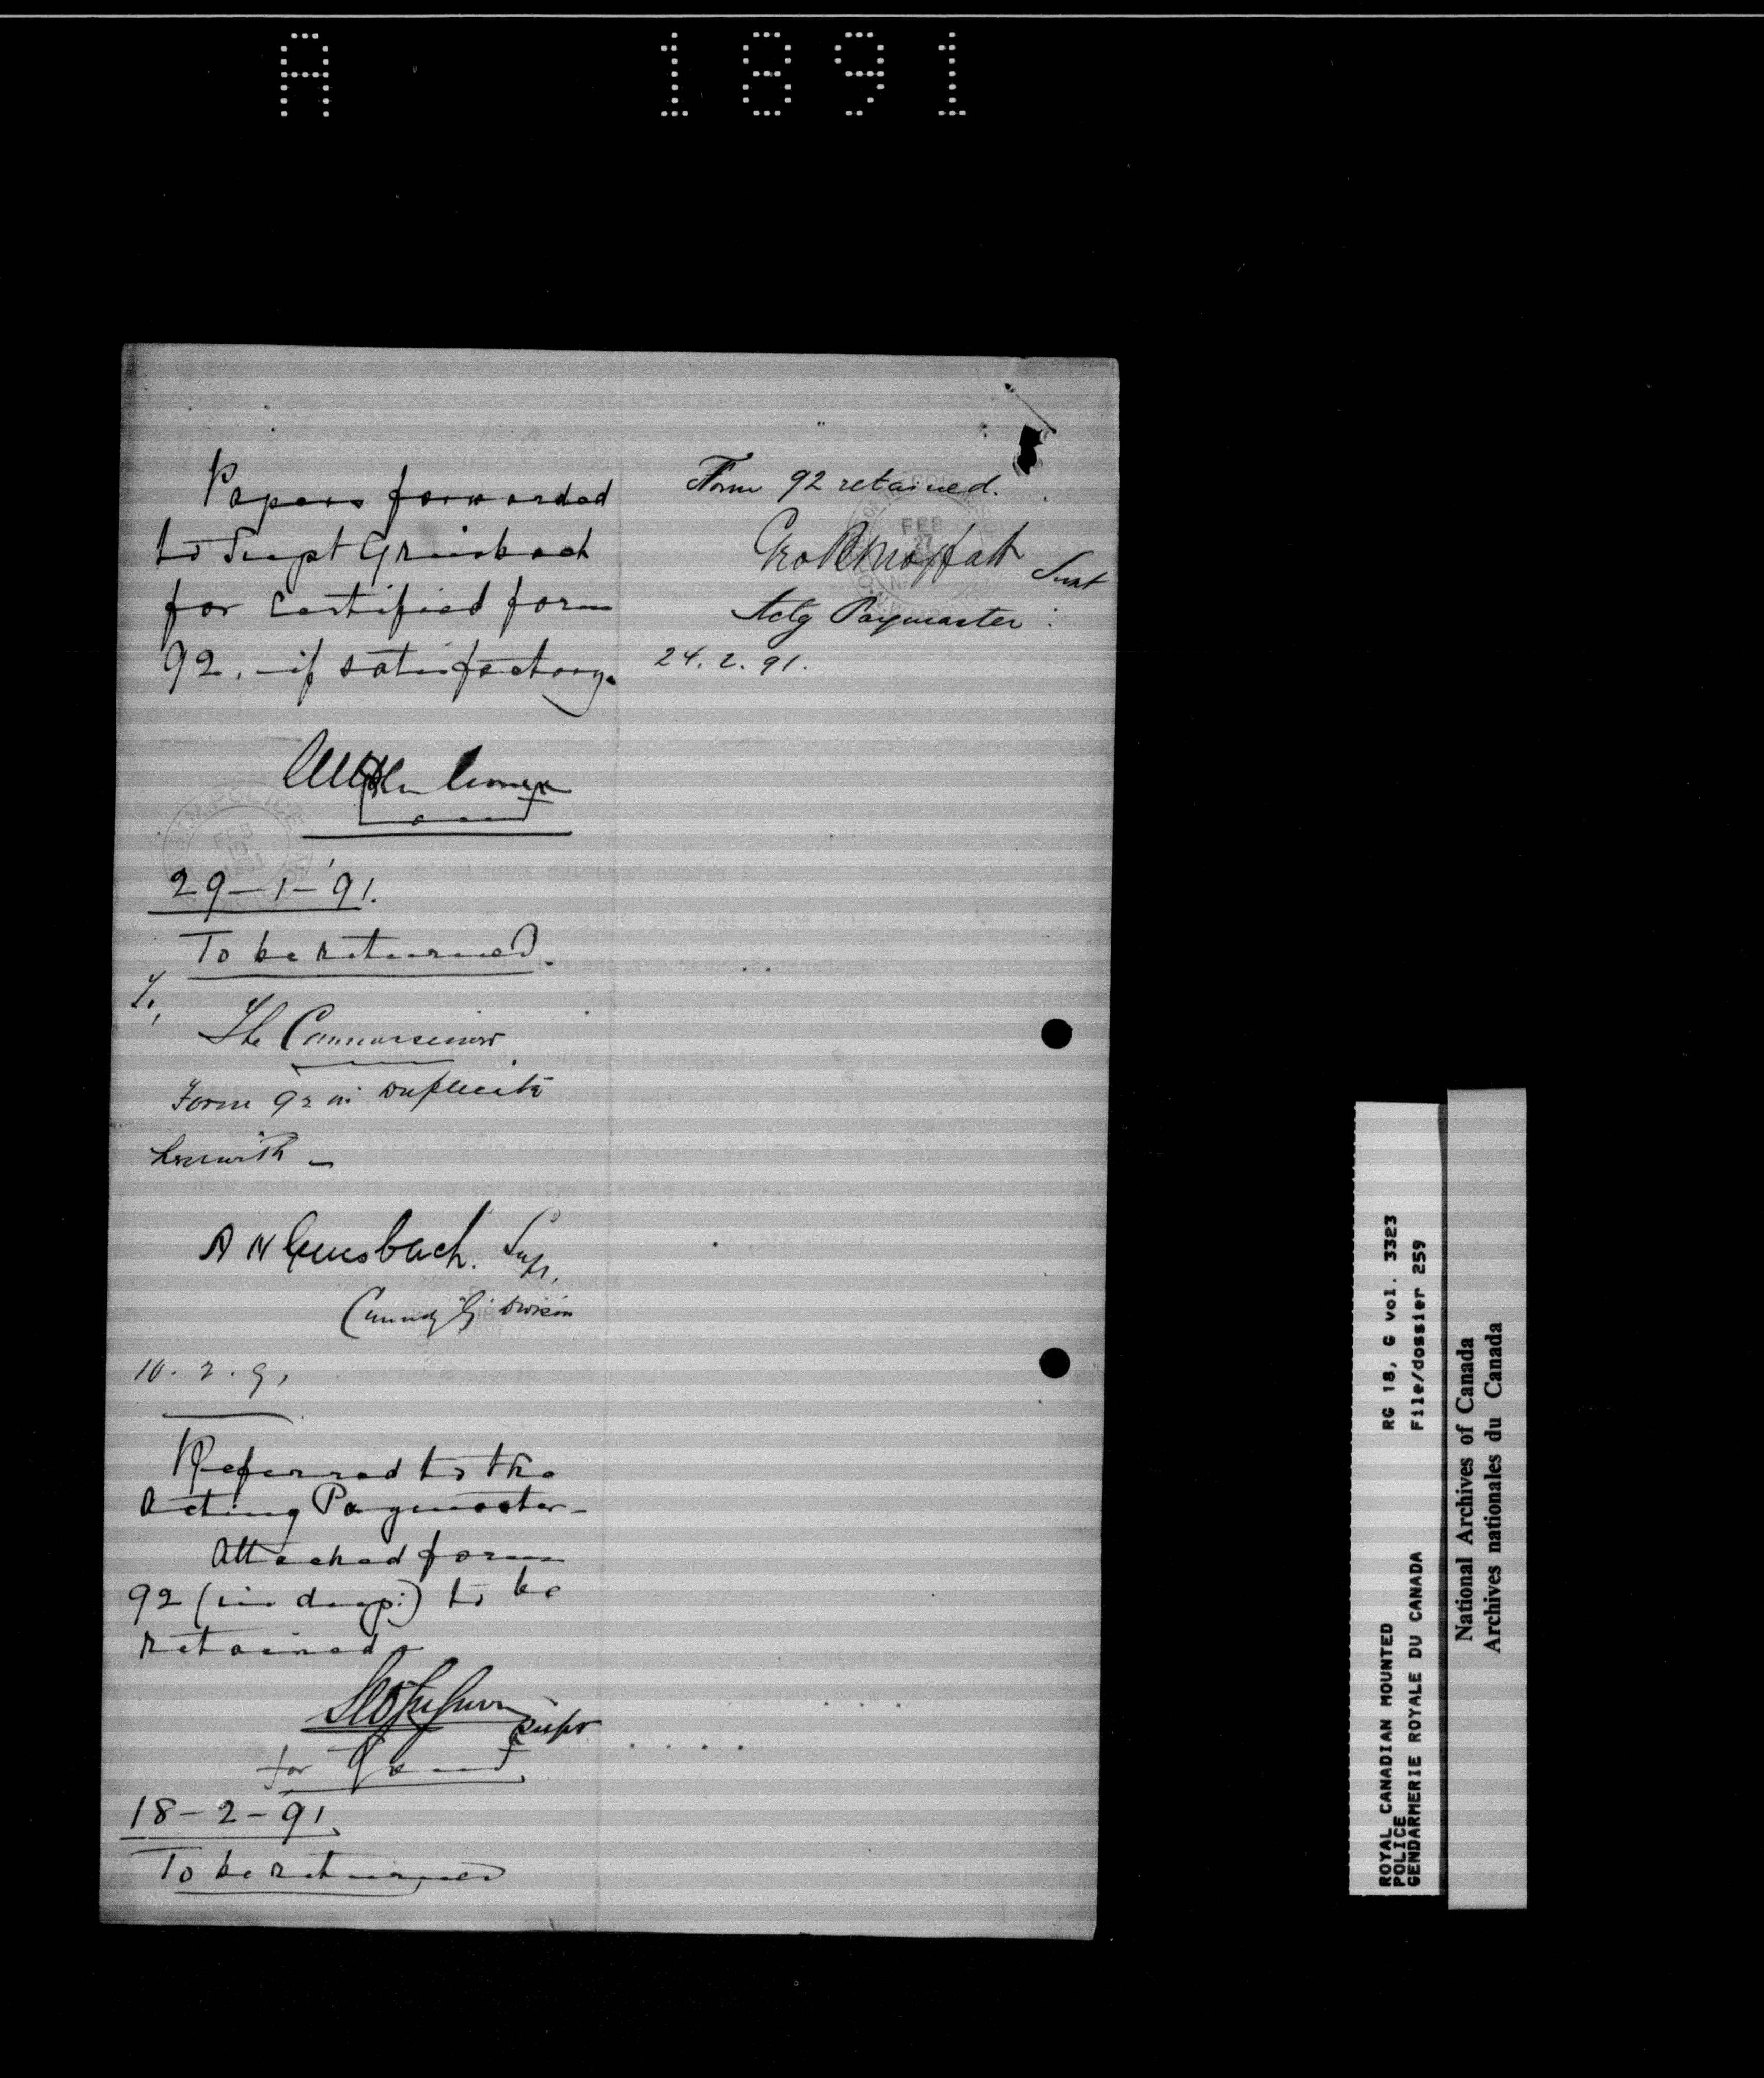 A 1891
Papers forwarded
to Supt Griesbach
for certified form
92. if satisfactory.
29-1-'91.
To be returned.
The Commissioner
Form 92 in Duplicate
herewith -
A H Griesbach. Supt.
Commdg "G" Division
10.2.91
Referred to the
Acting Paymaster -
Attached form
92 (in dup:) to be
retained.
Supt
for
18-2-91.
To be returned
Form 92 retained.
Geo B Moffatt Supt
Actg Paymaster:
24.2.91.
N.W.M. POLICE
FEB
10
1891
FEB
27
ROYAL CANADIAN MOUNTED
POLICE
GENDARMERIE ROYALE DU CANADA
RG 18, G vol. 3323
File/dossier 259
National Archives of Canada
Archives nationales du Canada